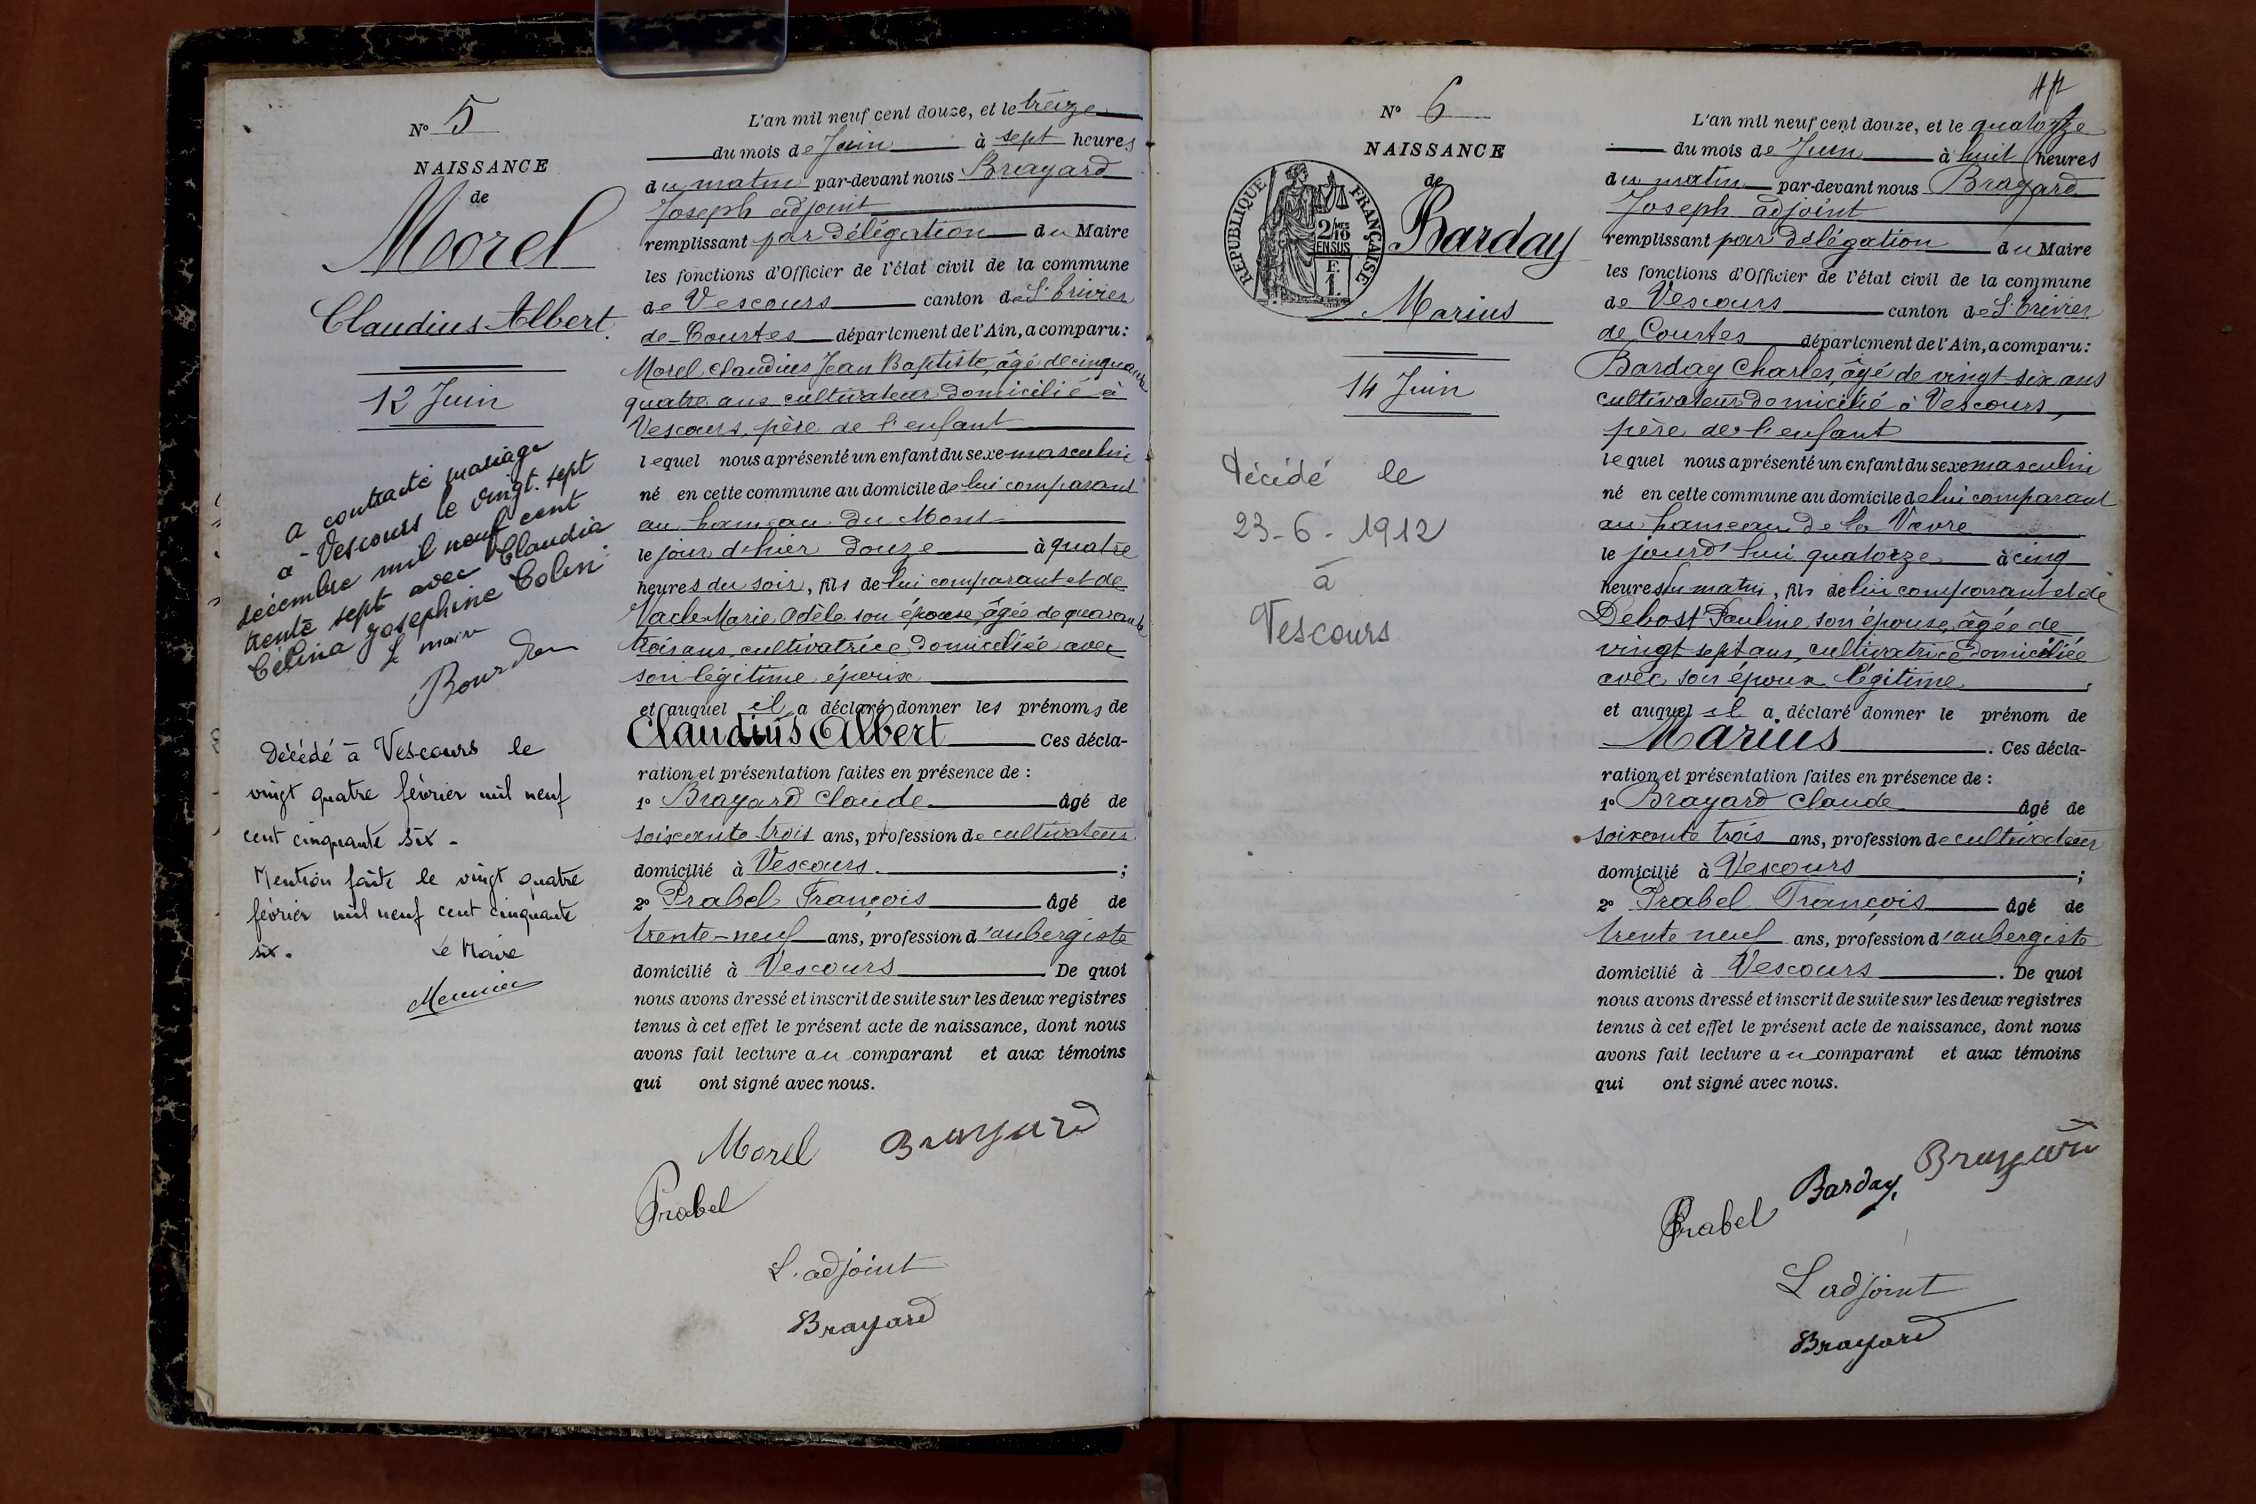 N° 5
NAISSANCE
de
Morel
Claudius Albert.
12 Juin
a contracté mariage
à Vescours le vingt-sept
décembre mil neuf cent
trente sept avec Claudia
Célina Josephine Colin
Le maire
Bourdon
Décédé à Vescours le
vingt quatre février mil neuf
cent cinquante six.
Mention faite le vingt quatre
février mil neuf cent cinquante
six.
Le Maire
Meunier
L'an mil neuf cent douze, et le treize
du mois de Juin à sept heures
du matin par-devant nous Brayard
Joseph adjoint
remplissant par délégation du Maire
les fonctions d'Officier de l'état civil de la commune
de Vescours canton de St Trivier
de Courtes département de l'Ain, a comparu :
Morel Claudius Jean Baptiste, âgé de cinquante
quatre ans cultivateur domicilié à
Vescours, père de l'enfant
lequel nous a présenté un enfant du sexe masculin
né en cette commune au domicile de lui comparant
au hameau du Mont
le jour d'hier douze à quatre
heures du soir, fils de lui comparant et de
Vacle Marie Adèle son épouse, âgée de quarante
trois ans, cultivatrice domiciliée avec
son légitime époux
et auquel il a déclaré donner les prénoms de
Claudius Albert Ces décla-
ration et présentation faites en présence de :
1° Brayard Claude âgé de
soixante trois ans, profession de cultivateur
domicilié à Vescours. ;
2° Prabel François âgé de
trente-neuf ans, profession d'aubergiste
domicilié à Vescours. De quoi
nous avons dressé et inscrit de suite sur les deux registres
tenus à cet effet le présent acte de naissance, dont nous
avons fait lecture au comparant et aux témoins
qui ont signé avec nous.
Morel Brayard
Prabel
L'adjoint
Brayard
N° 6
NAISSANCE
de
RÉPUBLIQUE FRANÇAISE
2/10MES
EN SUS
F.
1.
Barday
Marius
14 Juin
Décédé le
23-6-1912
à
Vescours
L'an mil neuf cent douze, et le quatorze
du mois de Juin à huit heures
du matin par-devant nous Brayard
Joseph adjoint
remplissant par délégation du Maire
les fonctions d'Officier de l'état civil de la commune
de Vescours canton de St Trivier
de Courtes département de l'Ain, a comparu :
Barday Charles, âgé de vingt six ans
cultivateur domicilié à Vescours,
père de l'enfant
lequel nous a présenté un enfant du sexe masculin
né en cette commune au domicile de lui comparant
au hameau de la Vavre
le jourd'hui quatorze à cinq
heures du matin, fils de lui comparant et de
Debost Pauline son épouse, âgée de
vingt sept ans, cultivatrice domiciliée
avec son époux légitime
et auquel il a déclaré donner le prénom de
Marius. Ces décla-
ration et présentation faites en présence de :
1° Brayard Claude âgé de
soixante trois ans, profession de cultivateur
domicilié à Vescours ;
2° Prabel François âgé de
trente neuf ans, profession d'aubergiste
domicilié à Vescours. De quoi
nous avons dressé et inscrit de suite sur les deux registres
tenus à cet effet le présent acte de naissance, dont nous
avons fait lecture au comparant et aux témoins
qui ont signé avec nous.
Prabel Barday, Brayard
L'adjoint
Brayard